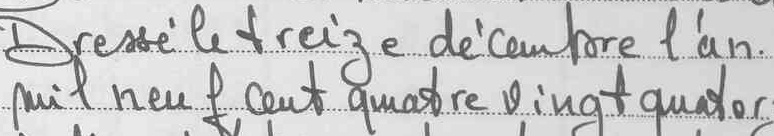 Dressé le treize décembre l'an.
mil neuf cent quatre vingt quator